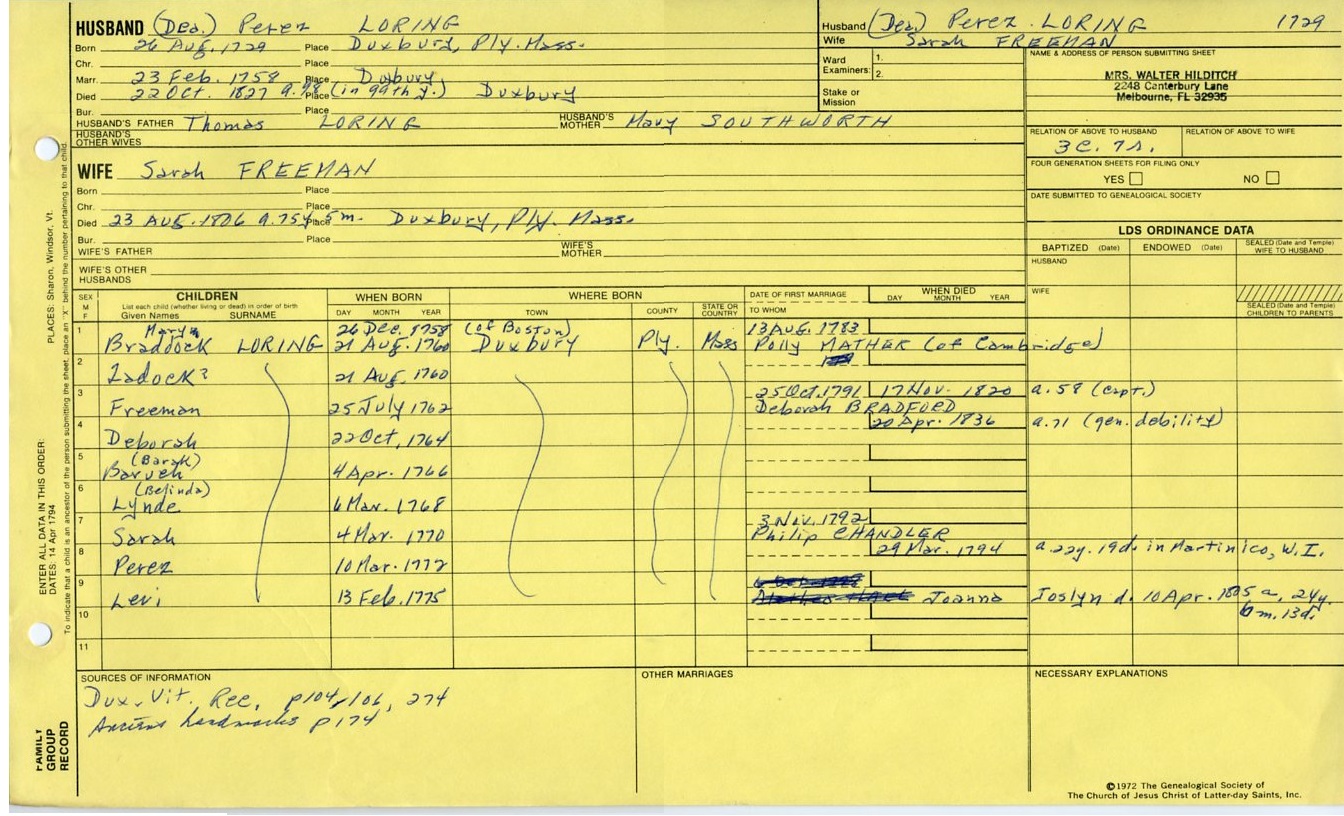 HUSBAND (Dea.) Perez LORING
Born 26 Aug. 1729 Place Duxbury, Ply. Mass.
Chr. Place
Marr. 23 Feb. 1758 Place Duxbury
Died 22 Oct. 1827 a. 98 Place (in 99th y.) Duxbury
Bur. Place
HUSBAND'S FATHER Thomas LORING HUSBAND'S MOTHER Mary SOUTHWORTH
HUSBAND'S OTHER WIVES
WIFE Sarah FREEMAN
Born Place
Chr. Place
Died 23 Aug. 1806 a. 75y. 5m. Place Duxbury, Ply. Mass.
Bur. Place
WIFE'S FATHER WIFE'S MOTHER
WIFE'S OTHER HUSBANDS
Husband (Dea.) Perez LORING 1729
Wife Sarah FREEMAN
Ward Examiners: 1.
2.
Stake or Mission
NAME & ADDRESS OF PERSON SUBMITTING SHEET
MRS. WALTER HILDITCH
2248 Canterbury Lane
Melbourne, FL 32935
RELATION OF ABOVE TO HUSBAND RELATION OF ABOVE TO WIFE
3c. 7r.
FOUR GENERATION SHEETS FOR FILING ONLY
YES NO
DATE SUBMITTED TO GENEALOGICAL SOCIETY
LDS ORDINANCE DATA
BAPTIZED (Date) ENDOWED (Date) SEALED (Date and Temple) WIFE TO HUSBAND
HUSBAND
WIFE
SEALED (Date and Temple) CHILDREN TO PARENTS
SEX M F
CHILDREN
List each child (whether living or dead) in order of birth
Given Names SURNAME
WHEN BORN
DAY MONTH YEAR
WHERE BORN
TOWN COUNTY STATE OR COUNTRY
DATE OF FIRST MARRIAGE
TO WHOM
WHEN DIED
DAY MONTH YEAR
1 Mary 26 Dec. 1758 (of Boston) 13 Aug. 1783
Braddock LORING 21 Aug. 1760 Duxbury Ply. Mass Polly MATHER (of Cambridge)
2
Zadock? 21 Aug. 1760
3 25 Oct. 1791 17 Nov. 1820 a. 58 (capt.)
Freeman 25 July 1762 Deborah BRADFORD
4 20 Apr. 1836 a. 71 (gen. debility)
Deborah 22 Oct, 1764
5 (Barak)
Baruch 4 Apr. 1766
6 (Belinda)
Lynde 6 Mar. 1768
7 3 Nov. 1792
Sarah 4 Mar. 1770 Philip CHANDLER
8 29 Mar. 1794 a. 22y. 19d. in Martinico, W. I.
Perez 10 Mar. 1772
9
Levi 13 Feb. 1775 Joanna Joslyn d. 10 Apr. 1805 a, 24y.
6m. 13d.
10
11
SOURCES OF INFORMATION
Dux. Vit. Rec, p104, 106, 274
Ancient Landmarks p174
OTHER MARRIAGES
NECESSARY EXPLANATIONS
©1972 The Genealogical Society of
The Church of Jesus Christ of Latter-day Saints, Inc.
FAMILY GROUP RECORD
ENTER ALL DATA IN THIS ORDER:
DATES: 14 Apr 1794
PLACES: Sharon, Windsor, Vt.
To indicate that a child is an ancestor of the person submitting the sheet, place an "X" behind the number pertaining to that child.